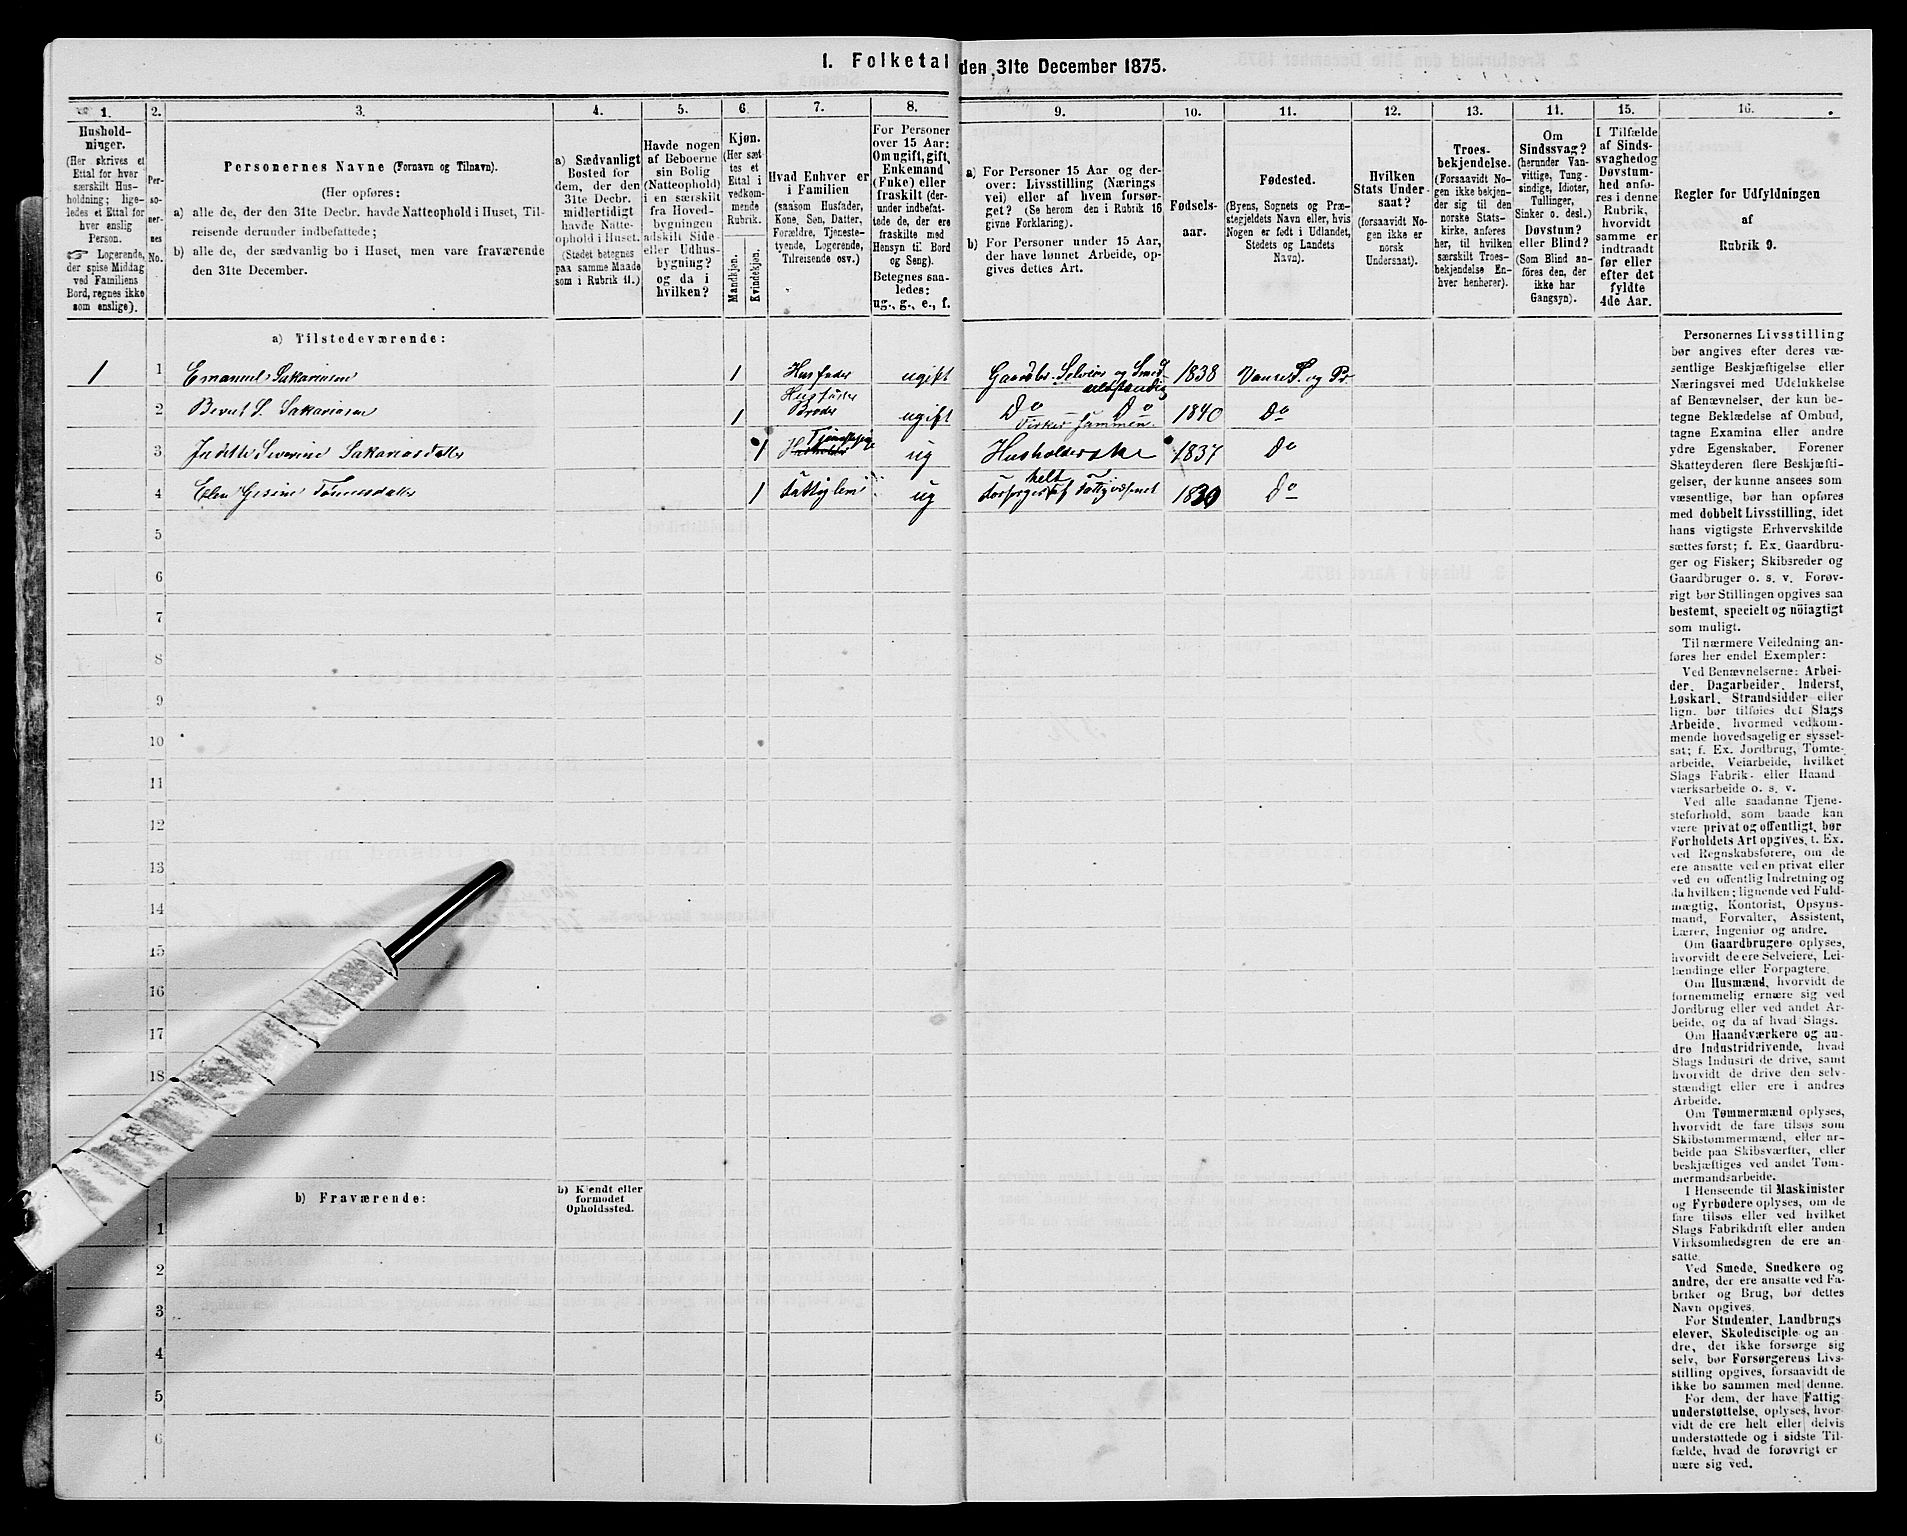 1. Folketal den 31te December 1875.
1.
Hushold-
ninger.
(Her skrives et
Ettal for hver
særskilt Hus-
holdning; lige-
ledes et Ettal for
hver enslig
Person.
☞ Logerende,
der spise Middag
ved Familiens
Bord, regnes ikke
som enslige).
2.
Per-
so-
ner-
nes
No.
3.
Personernes Navne (Fornavn og Tilnavn).
(Her opføres:
a) alle de, der den 31te Decbr. havde Natteophold i Huset, Til-
reisende derunder indbefattede;
b) alle de, der sædvanlig bo i Huset, men vare fraværende
den 31te December.
4.
a) Sædvanligt
Bosted for
dem, der den
31te Decbr.
midlertidigt
havde Natte-
ophold i Huset.
(Stedet betegnes
paa samme Maade
som i Rubrik 11.)
5.
Havde nogen
af Beboerne
sin Bolig
(Natteophold)
i en særskilt
fra Hoved-
bygningen
adskilt Side-
eller Udhus-
bygning?
og da i
hvilken?
6.
Kjøn.
(Her sæt-
tes et
Ettal i
vedkom-
mende
Rubrik.
Mandkjøn.
Kvindekjøn.
7.
Hvad Enhver er
i Familien
(saasom Husfader,
Kone, Søn, Datter,
Forældre, Tjeneste-
tyende, Logerende,
Tilreisende osv.)
8.
For Personer
over 15 Aar:
Om ugift, gift,
Enkemand
(Enke) eller
fraskilt (der-
under indbefat-
tede de, der ere
fraskilte med
Hensyn til Bord
og Seng).
Betegnes saa-
ledes:
ug., g., e., f.
9.
a) For Personer 15 Aar og der-
over: Livsstilling (Nærings
vei) eller af hvem forsør-
get? (Se herom den i Rubrik 16
givne Forklaring).
b) For Personer under 15 Aar,
der have lønnet Arbeide, op-
gives dettes Art.
10.
Fødsels-
aar.
11.
Fødested.
(Byens, Sognets og Præ-
stegjeldets Navn eller, hvis
Nogen er født i Udlandet,
Stedets og Landets
Navn).
12.
Hvilken
Stats Under-
saat?
(forsaavidt No-
gen ikke er
norsk
Undersaat).
13.
Troes-
bekjendelse.
(Forsaavidt No-
gen ikke bekjen-
der sig til den
norske Stats-
kirke, anføres
her, til hvilken
særskilt Troes-
bekjendelse En-
hver henhører).
11.
Om
Sindssvag?
(herunder Van-
vittige, Tung-
sindige, Idioter,
Tullinger,
Sinker o. desl.)
Døvstum?
eller Blind?
(Som Blind an-
føres den, der
ikke har
Gangsyn).
15.
I Tilfælde
af Sinds-
svaghed og
Døvstum-
hed anfø-
res i denne
Rubrik,
hvorvidt
samme er
indtraadt
før eller
efter det
fyldte
4de Aar.
16.
Regler for Udfyldningen
af
Rubrik 9.
a) Tilstedeværende:
1 1 Emanuel Sakariasen 1 Husfader ugift Gaardbr. Selveier og Smed selvstændig 1838 Vanse S. og Pr
2 Bernt S. Sakariasen 1 Husfaders Broder ugift Do Do Virker sammen. 1840 Do
3 Judithe Severine Sakariasdatter 1 Tjenestepige ug Husholderske 1837 Do
4 Elen Gesine Tønnesdatter 1 Fattiglem ug Forsørges helt af Fattigvæsenet 1830 Do
5
6
7
8
9
10
11
12
13
14
15
16
17
18
b) Fraværende:
b) Kjendt eller
formodet
Opholdssted.
1
2
3
4
5
6
Personernes Livsstilling
bør angives efter deres væ-
sentlige Beskjæftigelse eller
Næringsvei med Udelukkelse
af Benævnelser, der kun be-
tegne Beklædelse af Ombud,
tagne Examina eller andre
ydre Egenskaber. Forener
Skatteyderen flere Beskjæfti-
gelser, der kunne ansees som
væsentlige, bør han opføres
med dobbelt Livsstilling, idet
hans vigtigste Erhvervskilde
sættes først; f. Ex. Gaardbru-
ger og Fisker; Skibsreder og
Gaardbruger o. s. v. Forøv-
rigt bør Stillingen opgives saa
bestemt, specielt og nöiagtigt
som muligt.
Til nærmere Veiledning an-
føres her endel Exempler:
Ved Benævnelserne: Arbei-
der, Dagarbeider, Inderst,
Løskarl, Strandsidder eller
lign. bør tilføies det Slags
Arbeide, hvormed vedkom-
mende hovedsagelig er syssel-
sat; f. Ex. Jordbrug, Tomte-
arbeide, Veiarbeide, hvilket
Slags Fabrik- eller Haand
værksarbeide o. s. v.
Ved alle saadanne Tjene-
steforhold, som baade kan
være privat og offentligt, bør
Forholdets Art opgives, t. Ex.
ved Regnskabsførere, om de
ere ansatte ved en privat eller
ved en offentlig Indretning og
da hvilken; lignende ved Fuld-
mægtig, Kontorist, Opsyns-
mand, Forvalter, Assistent,
Lærer, Ingeniør og andre.
Om Gaardbrugere oplyses,
hvorvidt de ere Selveiere, Lei-
lændinge eller Forpagtere.
Om Husmænd, hvorvidt de
fornemmelig ernære sig ved
Jordbrug eller ved andet Ar-
beide, og da af hvad Slags.
Om Haandværkere og an-
dre Industridrivende, hvad
Slags Industri de drive, samt
hvorvidt de drive den selv-
stændigt eller ere i andres
Arbeide.
Om Tømmermænd oplyses,
hvorvidt de fare tilsøs som
Skibstømmermænd, eller ar-
beide paa Skibsværfter, eller
beskjæftiges ved andet Tøm-
mermandsarbeide.
I Henseende til Maskinister
og Fyrbødere oplyses, om de
fare tilsøs eller ved hvilket
Slags Fabrikdrift eller anden
Virksomhedsgren de ere an-
satte.
Ved Smede, Snedkere og
andre, der ere ansatte ved Fa-
briker og Brug, bør dettes
Navn opgives.
For Studenter, Landbrugs
elever, Skoledisciple og an-
dre, der ikke forsørge sig
selv, bør Forsørgerens Livs-
stilling opgives, forsaavidt de
ikke bo sammen med denne.
For dem, der have Fattig-
understøttelse, oplyses, hvor-
vidt de ere helt eller delvis
understøttede og i sidste Til-
fælde, hvad de forøvrigt er
nære sig ved.